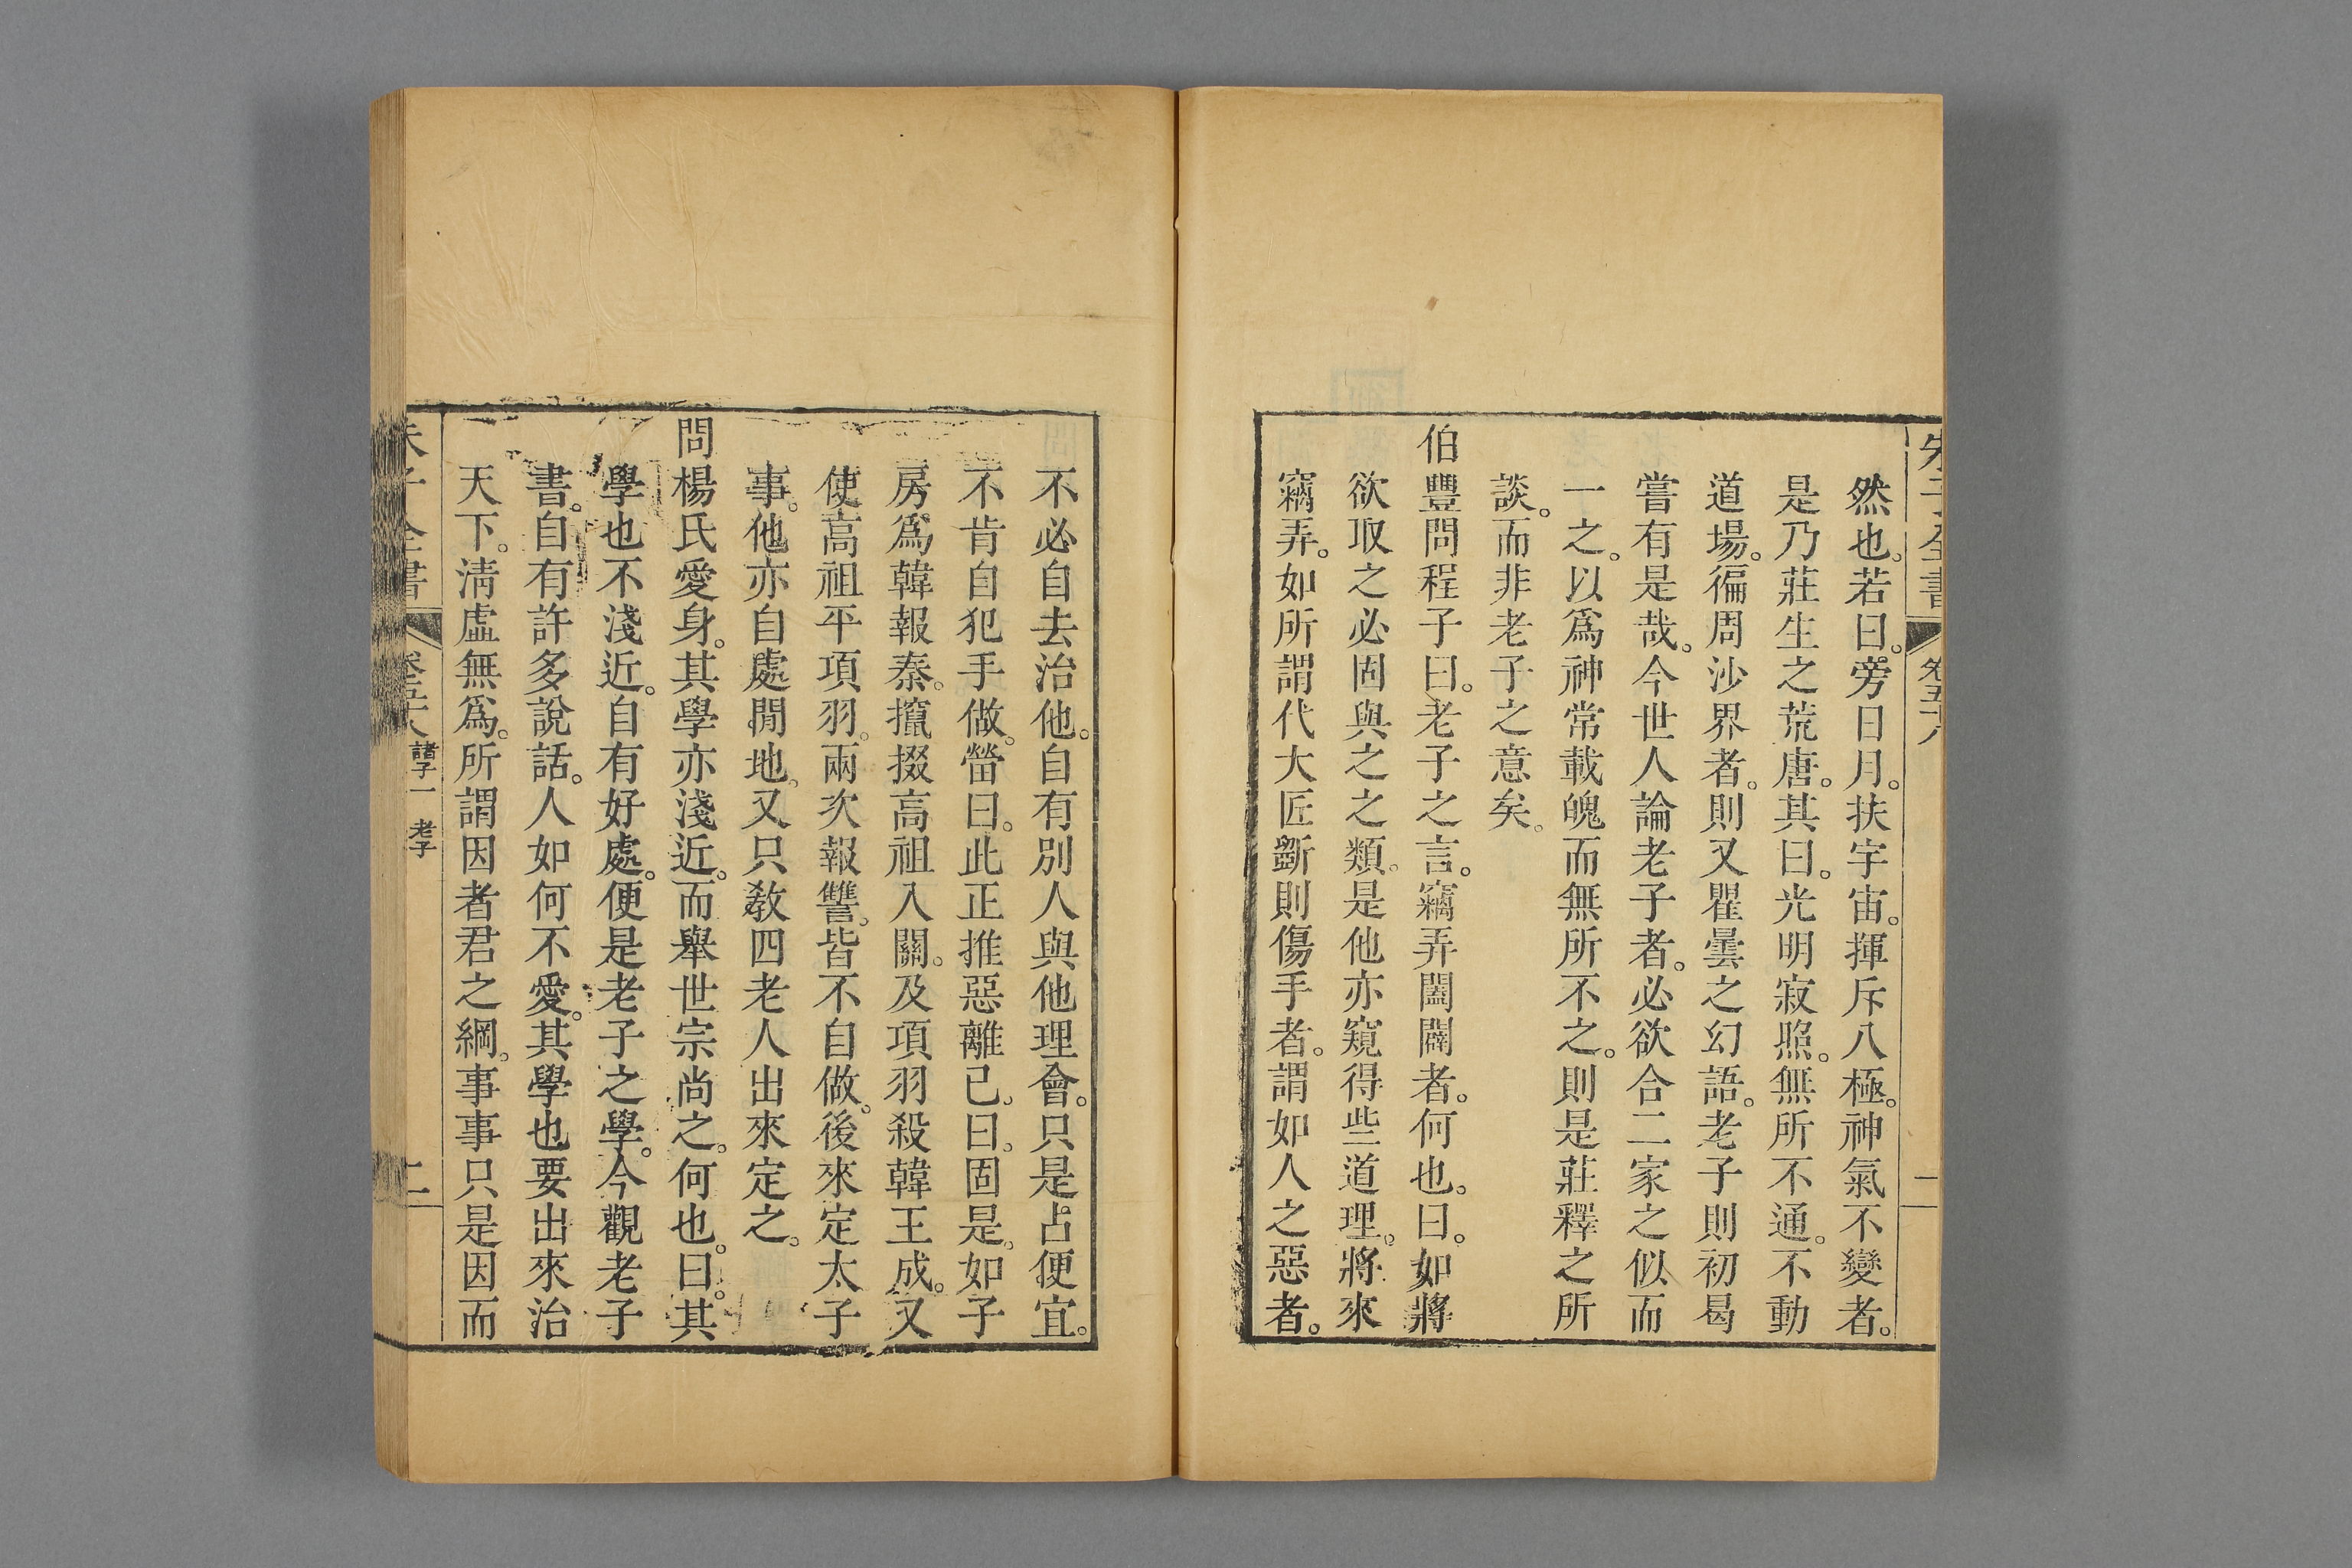 朱子全書 卷五十八 二
然也。若曰。旁日月。扶宇宙。揮斥八極。神氣不變者。
是乃莊生之荒唐。其曰。光明寂照。無所不通。不動
道場。徧周沙界者。則又瞿曇之幻語。老子則初曷
嘗有是哉。今世人論老子者。必欲合二家之似而
一之。以爲神常載魄而無所不之。則是莊釋之所
談。而非老子之意矣。
伯豐問程子曰。老子之言。竊弄闔闢者。何也。曰。如將
欲取之必固與之之類。是他亦窺得些道理。將來
竊弄。如所謂代大匠斲則傷手者。謂如人之惡者。
不必自去治他。自有別人與他理會。只是占便宜。
不肯自犯手做。㽦曰。此正推惡離己。曰。固是。如子
房爲韓報秦。攛掇高祖入關。及項羽殺韓王成。又
使高祖平項羽。兩次報讐。皆不自做。後來定太子
事。他亦自處閒地。又只敎四老人出來定之。
問楊氏愛身。其學亦淺近。而舉世宗尚之。何也。曰。其
學也不淺近。自有好處。便是老子之學。今觀老子
書。自有許多說話。人如何不愛。其學也要出來治
天下。淸虛無爲。所謂因者君之綱。事事只是因而
朱子全書 卷五十八 諸子一 老子 二